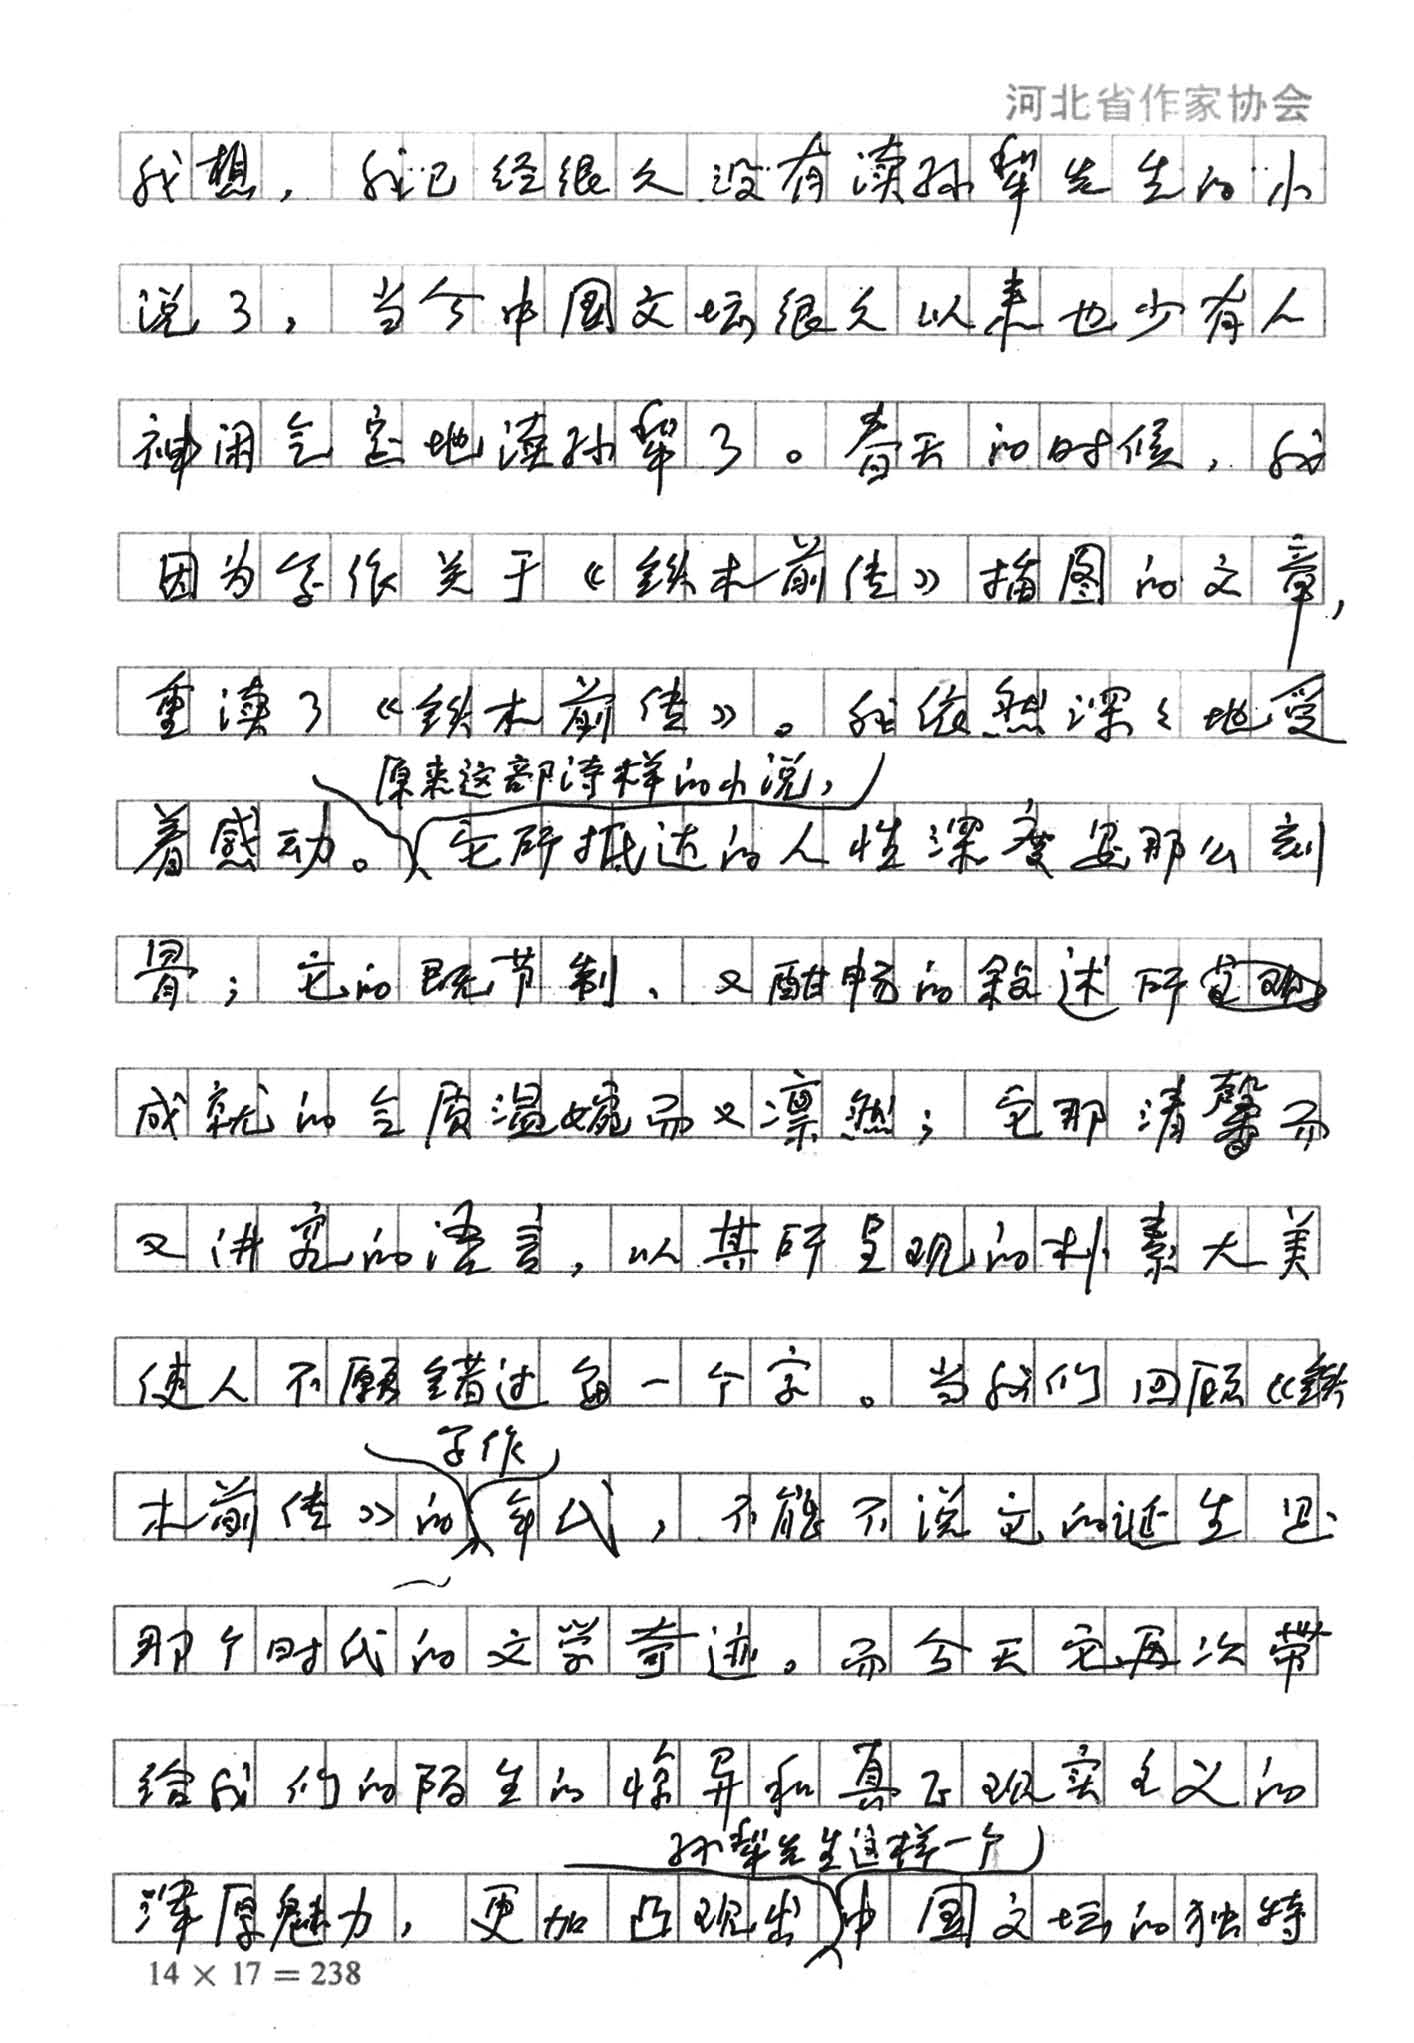 河北省作家协会
我想，我已经很久没有读孙犁先生的小
说了，当今中国文坛很久以来也少有人
神闲气定地读孙犁了。春天的时候，我
因为写作关于《铁木前传》插图的文章，
重读了《铁木前传》。我依然深深地受
原来这部诗样的小说，
着感动。它所抵达的人性深度是那么刻
骨；它的既节制、又酣畅的叙述所
成就的气质温婉而又凛然；它那清馨而
又讲究的语言，以其所呈现的朴素大美
使人不愿错过每一个字。当我们回顾《铁
写作
木前传》的年代，不能不说它的诞生是
那个时代的文学奇迹。而今天它再次带
给我们的陌生的惊异和真正现实主义的
孙犁先生这样一个
浑厚魅力，更加凸现出中国文坛的独特
14 × 17 = 238